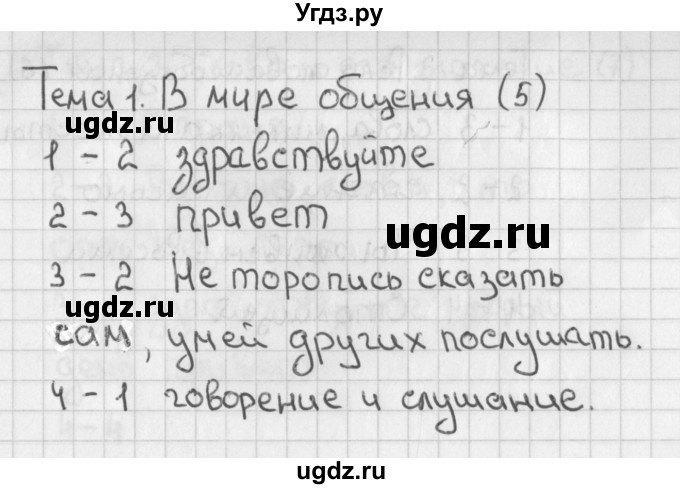 Угдз.ру
Тема 1. В мире общения (5)
ugdz.ru
1 – 2 здравствуйте
2 – 3 привет
ugdz.ru
3 – 2 Не торопись сказать
ugdz.ru
сам, умей других послушать.
4 – 1 говорение и слушание.
ugdz.ru